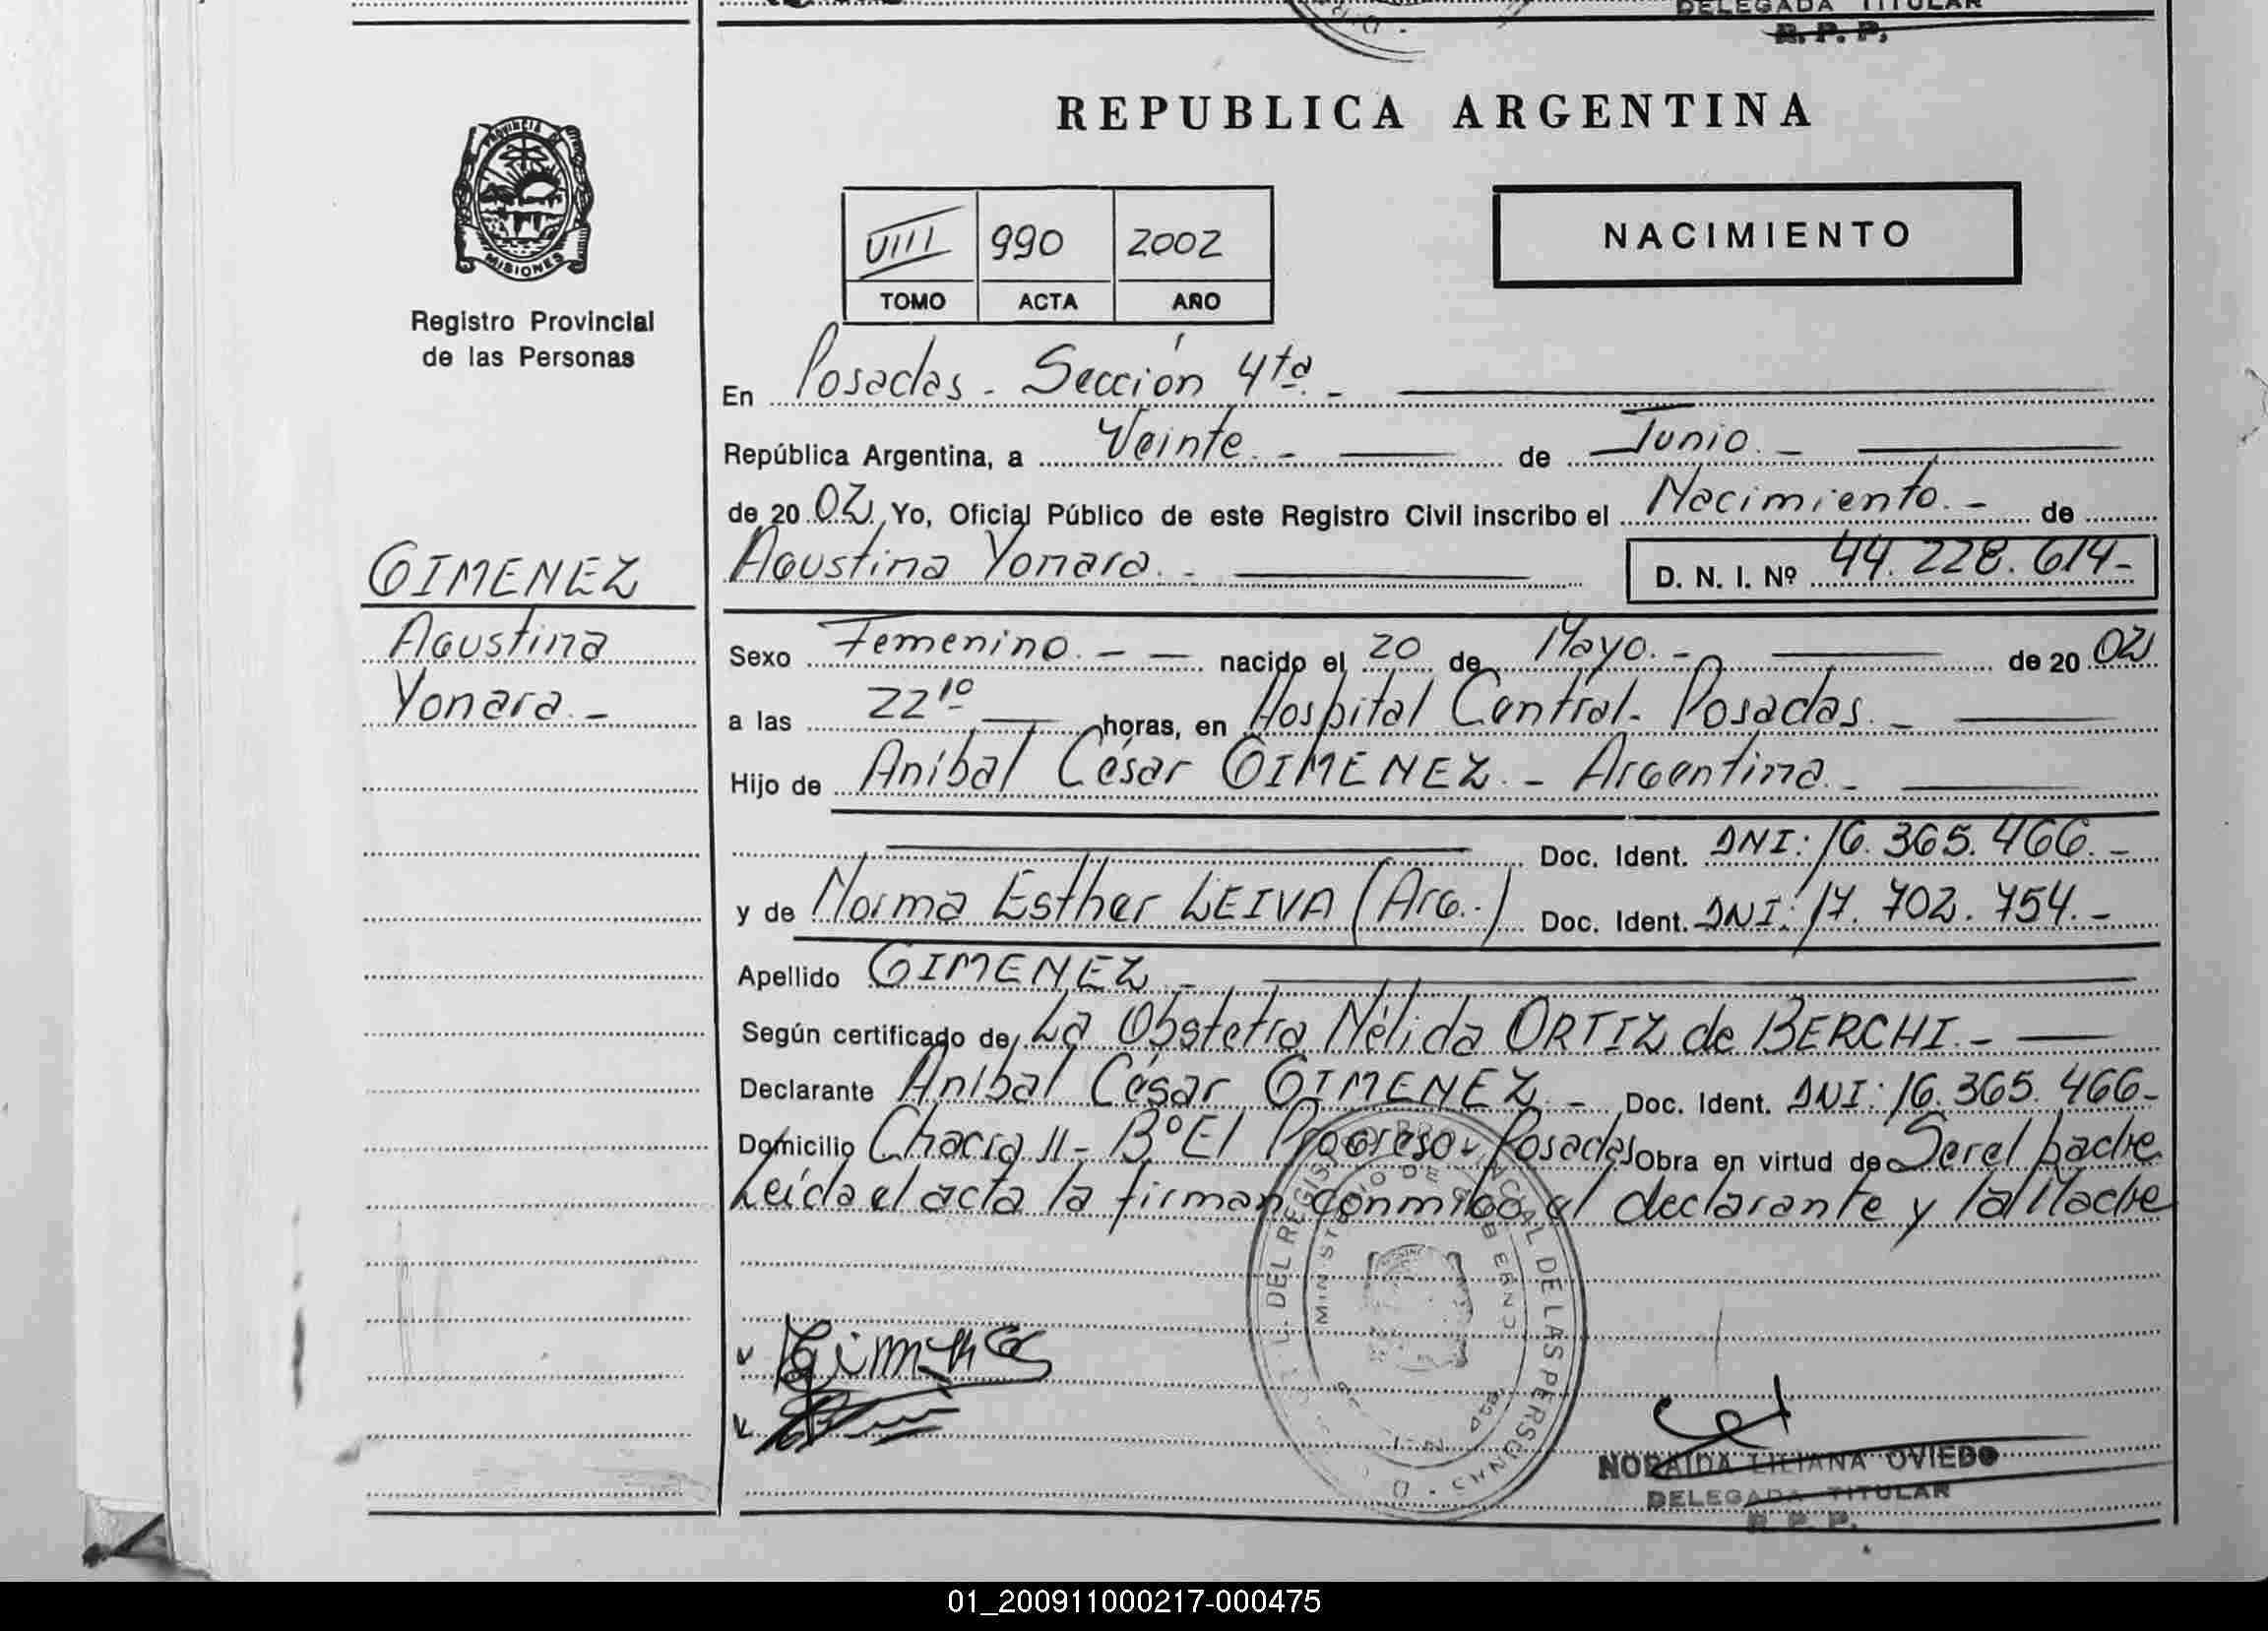 DELEGADA TITULAR
R. P. P.
REPUBLICA ARGENTINA
PROVINCIA DE
MISIONES
Registro Provincial
de las Personas
VIII 990 2002
TOMO ACTA AÑO
NACIMIENTO
En Posadas - Sección 4ta. -
República Argentina, a Veinte. - de Junio. -
de 2002 Yo, Oficial Público de este Registro Civil inscribo el Nacimiento. - de
Agustina Yonara. - D. N. I. Nº 44.228.614-
GIMENEZ
Agustina
Yonara. -
Sexo Femenino. - - nacido el 20 de Mayo. - de 2002
a las 22¹⁰ horas, en Hospital Central. Posadas. -
Hijo de Aníbal César GIMENEZ. - Argentina. -
Doc. Ident. DNI: 16.365.466. -
y de Norma Esther LEIVA (Arg..) Doc. Ident. DNI: 17.702.754. -
Apellido GIMENEZ. -
Según certificado de La Obstetra Nélida ORTIZ de BERCHI. -
Declarante Aníbal César GIMENEZ. - Doc. Ident. DNI: 16.365.466-
Domicilio Chacra 11 - Bº El Progreso - Posadas Obra en virtud de Ser el padre
Leída el acta la firman conmigo el declarante y la Madre
DEL REGISTRO PROVINCIAL DE LAS PERSONAS
MINISTERIO DE GOBIERNO
NORAIDA LILIANA OVIEDO
DELEGADA TITULAR
R. P. P.
01_200911000217-000475